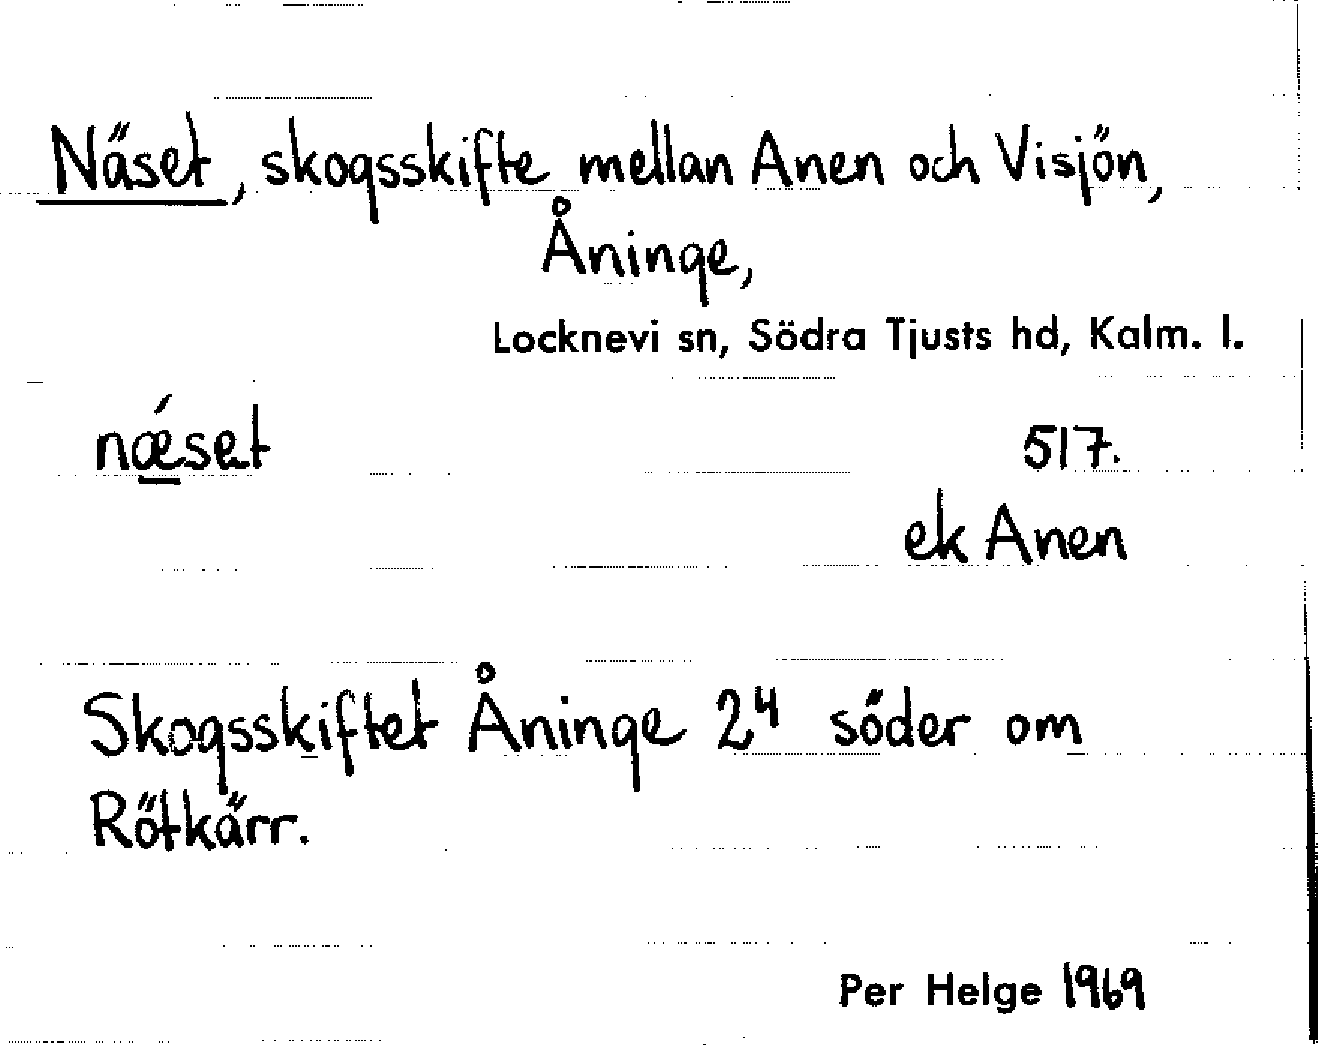 Näset, skogsskifte mellan Anen och Visjön,
Åninge,
Locknevi sn, Södra Tjusts hd, Kalm. l.
nǽ̱set 517.
ek Anen
Skogsskiftet Åninge 2⁴ söder om
Rötkärr.
Per Helge 1969